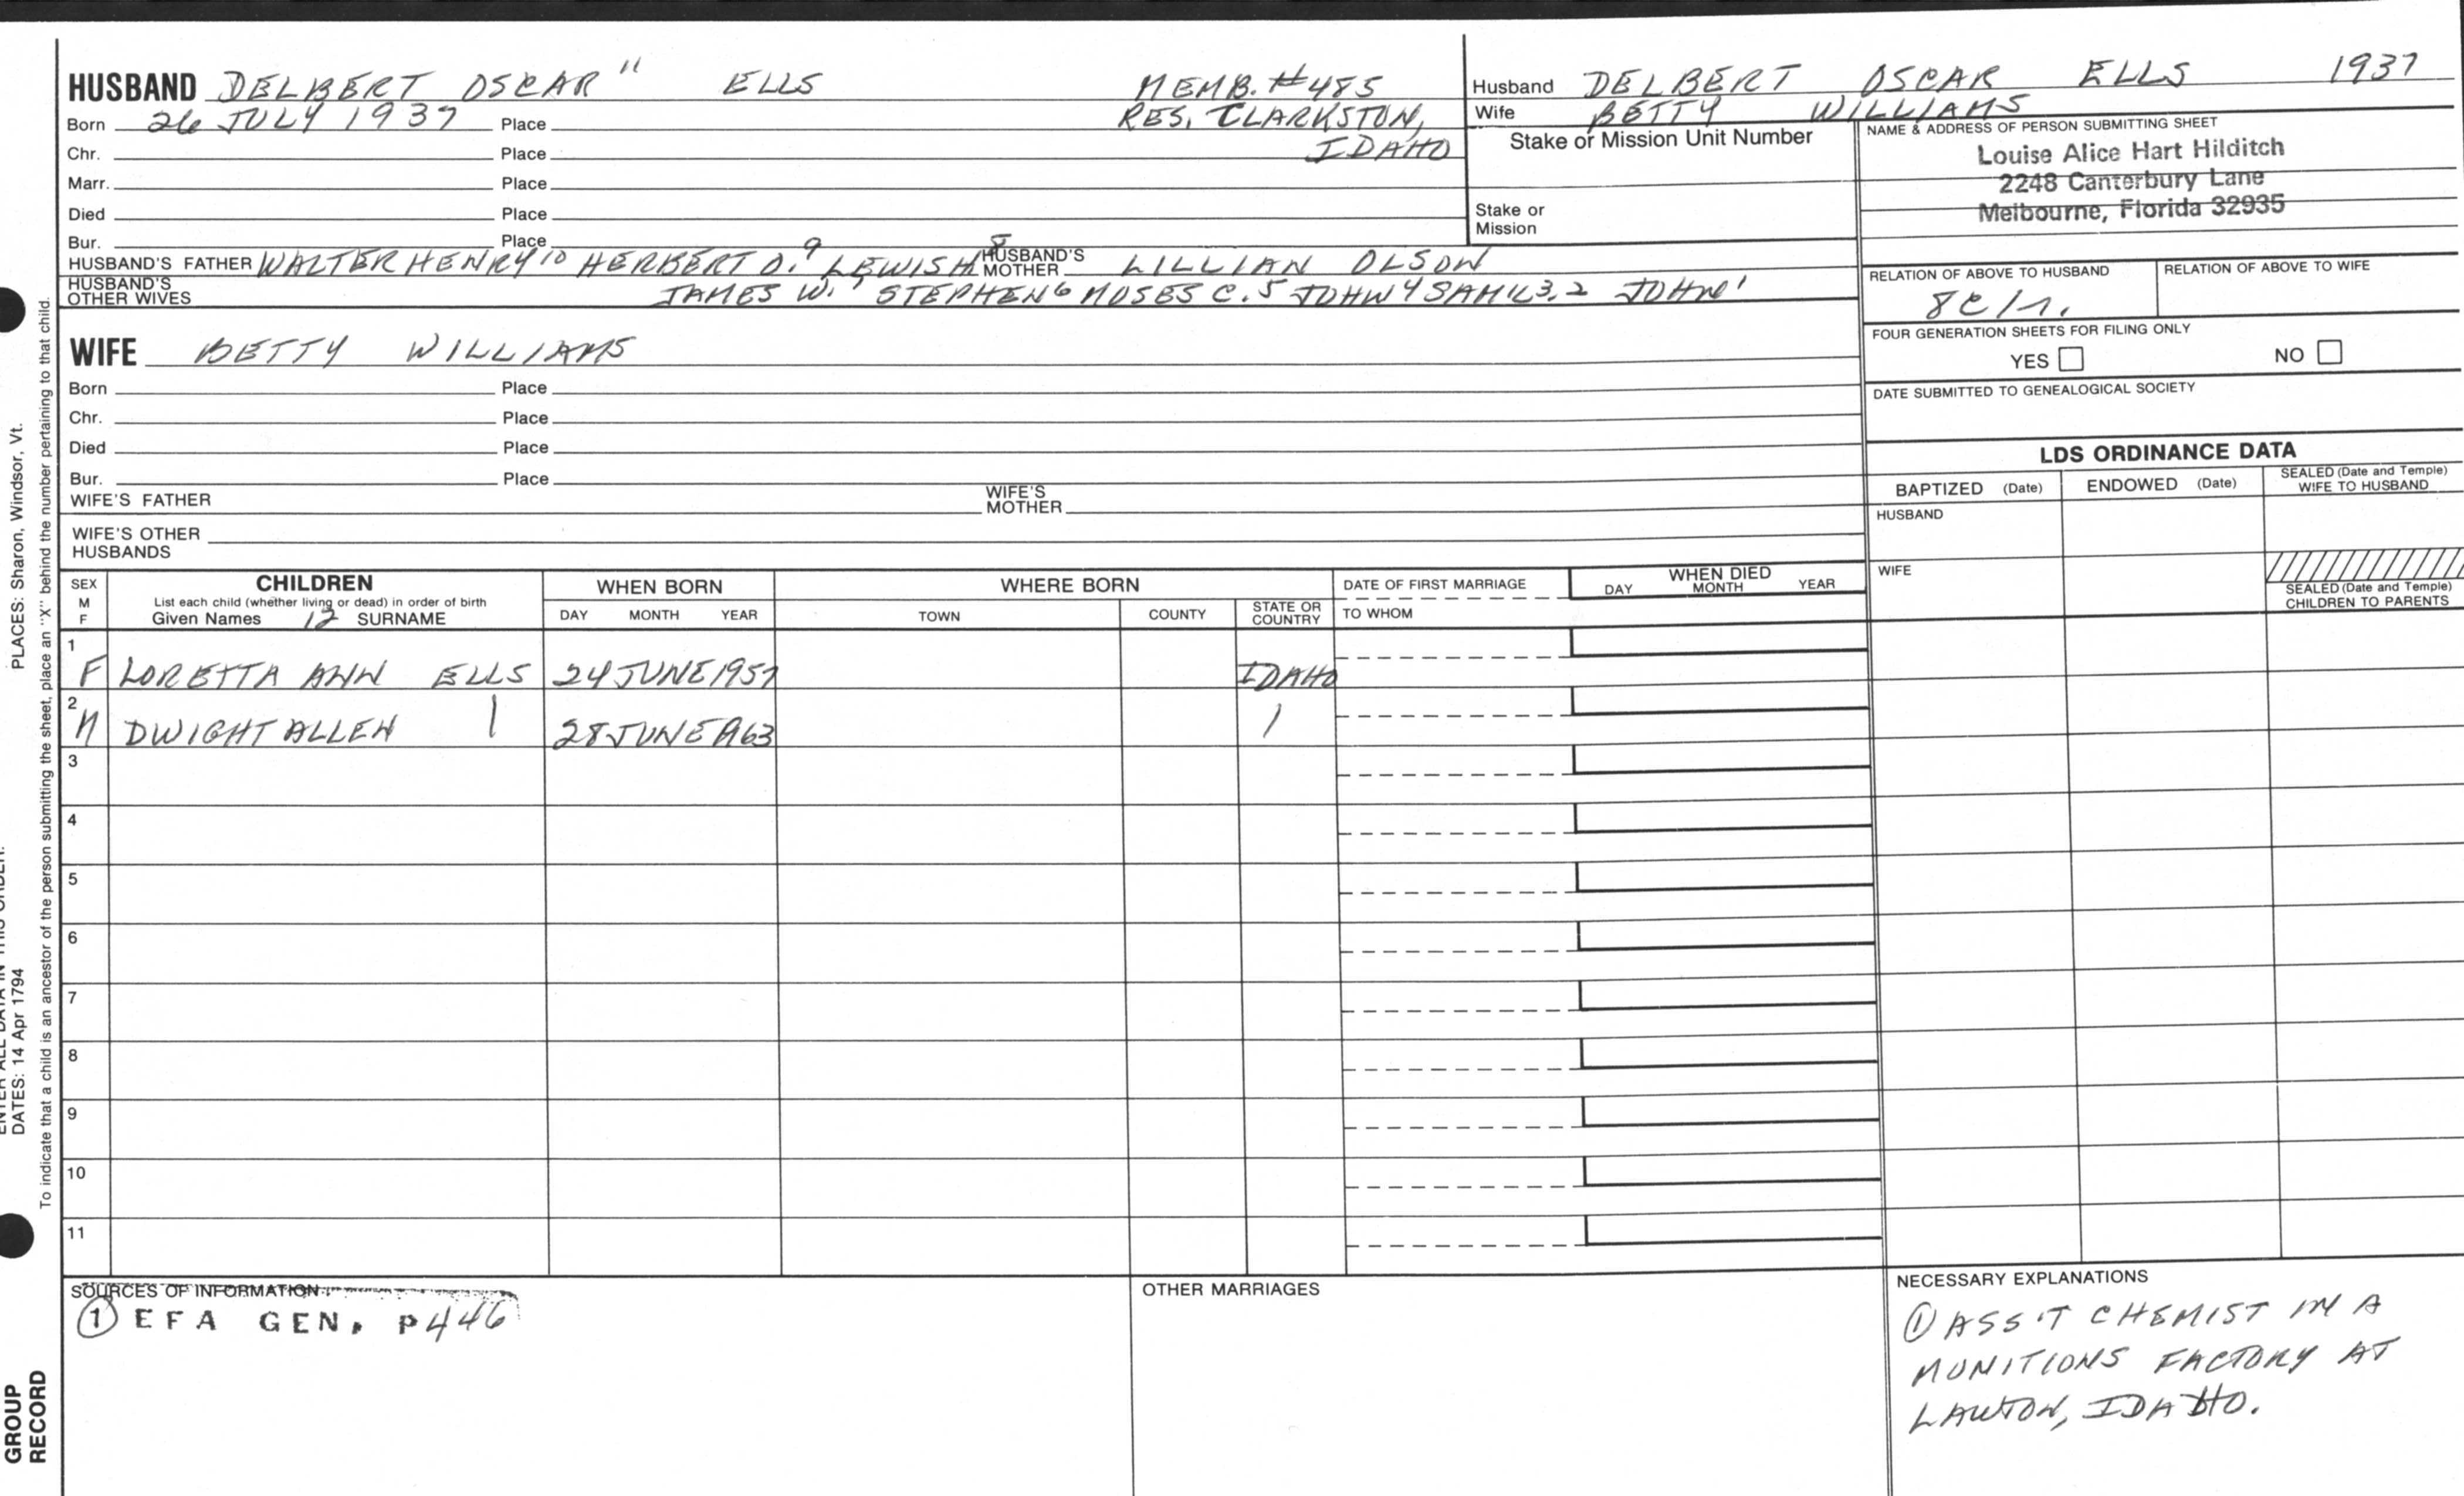 HUSBAND DELBERT OSCAR 11 ELLS MEMB. #485
Born 26 JULY 1937 Place RES. CLARKSTON,
Chr. Place IDAHO
Marr. Place
Died Place
Bur. Place
HUSBAND'S FATHER WALTER HENRY 10 HERBERT O. 9 LEWIS H 8 HUSBAND'S MOTHER LILLIAN OLSON
HUSBAND'S OTHER WIVES JAMES W. 7 STEPHEN 6 MOSES C. 5 JOHN 4 SAML 3, 2 JOHN 1
Husband DELBERT OSCAR ELLS 1937
Wife BETTY WILLIAMS
Stake or Mission Unit Number
Stake or
Mission
NAME & ADDRESS OF PERSON SUBMITTING SHEET
Louise Alice Hart Hilditch
2248 Canterbury Lane
Melbourne, Florida 32935
RELATION OF ABOVE TO HUSBAND RELATION OF ABOVE TO WIFE
8C/1.
FOUR GENERATION SHEETS FOR FILING ONLY
YES NO
DATE SUBMITTED TO GENEALOGICAL SOCIETY
WIFE BETTY WILLIAMS
Born Place
Chr. Place
Died Place
Bur. Place
WIFE'S FATHER WIFE'S MOTHER
WIFE'S OTHER
HUSBANDS
LDS ORDINANCE DATA
BAPTIZED (Date) ENDOWED (Date) SEALED (Date and Temple) WIFE TO HUSBAND
HUSBAND
WIFE
SEALED (Date and Temple)
CHILDREN TO PARENTS
SEX M F CHILDREN WHEN BORN WHERE BORN DATE OF FIRST MARRIAGE WHEN DIED
List each child (whether living or dead) in order of birth
Given Names 12 SURNAME DAY MONTH YEAR TOWN COUNTY STATE OR COUNTRY TO WHOM DAY MONTH YEAR
1 F LORETTA ANN ELLS 24 JUNE 1957 IDAHO
2 M DWIGHT ALLEN | 28 JUNE 1963 |
3
4
5
6
7
8
9
10
11
SOURCES OF INFORMATION
① EFA GEN. P446
OTHER MARRIAGES
NECESSARY EXPLANATIONS
① ASS'T CHEMIST IN A
MUNITIONS FACTORY AT
LAWTON, IDAHO.
PLACES: Sharon, Windsor, Vt.
DATES: 14 Apr 1794
To indicate that a child is an ancestor of the person submitting the sheet, place an "X" behind the number pertaining to that child.
GROUP
RECORD